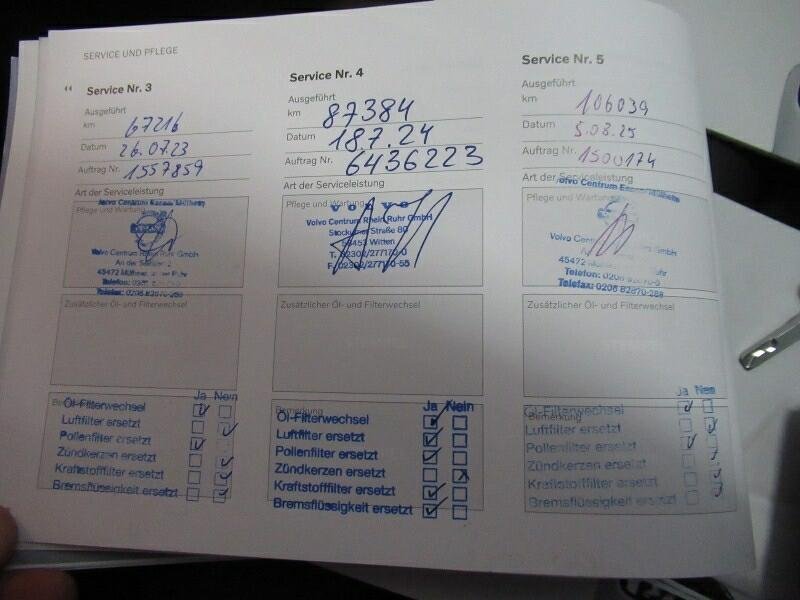 SERVICE UND PFLEGE
Service Nr. 3
Ausgeführt
km 67216
Datum 26.07.23
Auftrag Nr. 1557859
Art der Serviceleistung
Pflege und Wartung
Volvo Centrum Essen Mülheim
Volvo Centrum Rhein Ruhr GmbH
45472 Mülheim
Telefon: 0208
Telefax: 0208 82870-288
Zusätzlicher Öl- und Filterwechsel
Ja Nein
Öl-Filterwechsel
Luftfilter ersetzt
Pollenfilter ersetzt
Zündkerzen ersetzt
Kraftstoffilter ersetzt
Bremsflüssigkeit ersetzt
Service Nr. 4
Ausgeführt
km 87384
Datum 18.7.24
Auftrag Nr. 6436223
Art der Serviceleistung
Pflege und Wartung
VOLVO
Volvo Centrum Rhein Ruhr GmbH
Stockumer Straße 80
58453 Witten
T. 02302/277170-0
F. 02302/277170-55
Zusätzlicher Öl- und Filterwechsel
Bemerkung
Ja Nein
Öl-Filterwechsel
Luftfilter ersetzt
Pollenfilter ersetzt
Zündkerzen ersetzt
Kraftstofffilter ersetzt
Bremsflüssigkeit ersetzt
Service Nr. 5
Ausgeführt
km 106039
Datum 5.08.25
Auftrag Nr. 1500174
Art der Serviceleistung
Volvo Centrum Essen Mülheim
Pflege und Wartung
Volvo GmbH
45472 Ruhr
Telefon: 0208 82870-0
Telefax: 0208 82870-288
Zusätzlicher Öl- und Filterwechsel
Ja Nein
Bemerkung
Öl-Filterwechsel
Luftfilter ersetzt
Pollenfilter ersetzt
Zündkerzen ersetzt
Kraftstoffilter ersetzt
Bremsflüssigkeit ersetzt